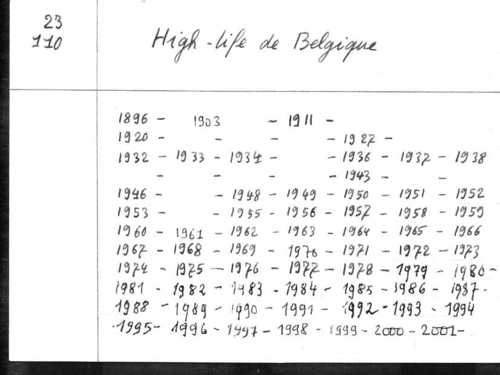 23
110
High-life de Belgique
1896 - 1903 - 1911 -
1920 - - - - 1927 -
1932 - 1933 - 1934 - - 1936 - 1937 - 1938
- - - - 1943 - -
1946 - - 1948 - 1949 - 1950 - 1951 - 1952
1953 - - 1955 - 1956 - 1957 - 1958 - 1959
1960 - 1961 - 1962 - 1963 - 1964 - 1965 - 1966
1967 - 1968 - 1969 - 1970 - 1971 - 1972 - 1973
1974 - 1975 - 1976 - 1977 - 1978 - 1979 - 1980 -
1981 - 1982 - 1983 - 1984 - 1985 - 1986 - 1987 -
1988 - 1989 - 1990 - 1991 - 1992 - 1993 - 1994
- 1995 - 1996 - 1997 - 1998 - 1999 - 2000 - 2001 -